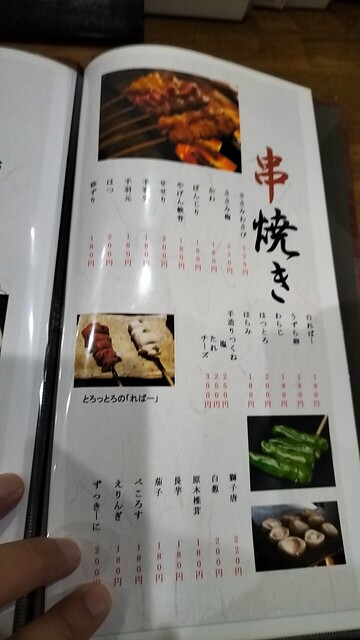 串焼き
ささみわさび 220円
ささみ梅 220円
かわ 180円
ぼんじり 180円
やげん軟骨 180円
せせり 200円
手羽先
手羽元 180円
はつ
砂ずり 180円
白ればー 180円
うずら卵 180円
わらじ
はつとろ 200円
はらみ 180円
手造りつくね
塩 250円
たれ 250円
チーズ 300円
とろっとろの「ればー」
獅子唐 220円
白葱 200円
原木椎茸 180円
長芋 180円
茄子 180円
ペころす 180円
えりんぎ 180円
ずっきーに 200円